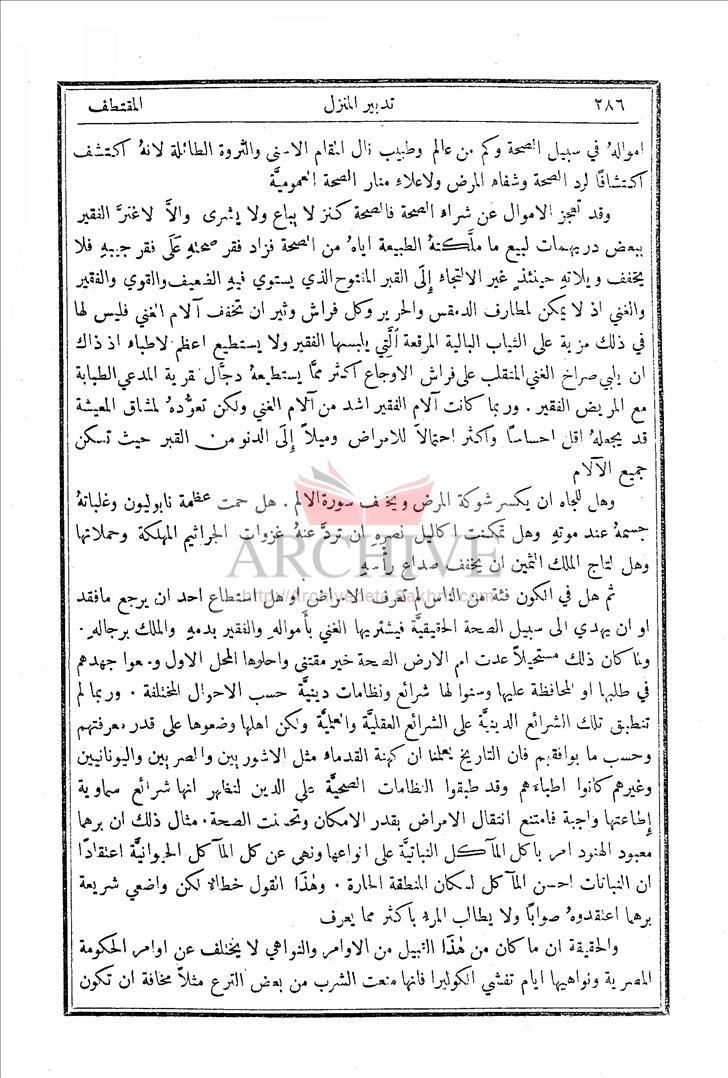 ٢٨٦ تدبير المنزل المقتطف
امواله في سبيل الصحة وكم من عالم وطبيب نال المقام الاسنى والثروة الطائلة لانهُ اكتشف
اكتشافًا لرد الصحة وشفاء المرض ولاعلاء منار الصحة العموميَّة
وقد تعجز الاموال عن شراء الصحة فالصحة كنز لا يباع ولا يشرى والاَّ لاغترَّ الفقير
ببعض دريهمات لبيع ما ملَّكتهُ الطبيعة اياهُ من الصحة فزاد فقر صحته عَلَى فقر جيبه فلا
يخفف ويلاته حينئذٍ غير الالتجاء إِلَى القبر المفتوح الذي يستوي فيهِ الضعيف والقوي والفقير
والغني اذ لا يمكن لمطارف الدمقس والحرير وكل فراش وثير ان تخفف آلام الغني فليس لها
في ذلك مزية على الثياب البالية المرقعة الَّتِي يلبسها الفقير ولا يستطيع اعظم الاطباء اذ ذاك
ان يلبي صراخ الغني المتقلب على فراش الاوجاع اكثر ممَّا يستطيعهُ دجَّال قرية المدعي الطبابة
مع المريض الفقير . وربما كانت آلام الفقير اشد من آلام الغني ولكن تعوُّدهُ لمشاق المعيشة
قد يجعلهُ اقل احساسًا واكثر احتمالاً للامراض وميلاً إِلَى الدنو من القبر حيث تسكن
جميع الآلام
وهل للجاه ان يكسر شوكة المرض ويخفف سورة الالم . هل حمت عظمة نابوليون وغلباتهُ
جسمهُ عند موتهِ وهل تمكنت اكاليل نصرهِ ان تردَّ عنهُ غزوات الجراثيم المهلكة وحملاتها
وهل لتاج الملك الثمين ان يخفف صداع رأسهِ
ARCHIVE
http://Archivebeta.Sakhrit.com
ثم هل في الكون فئة من الناس لم تعرف الامراض او هل استطاع احد ان يرجع ما فقد
او ان يهدي الى سبيل الصحة الحقيقيَّة فيشتريها الغني بأمواله والفقير بدمهِ والملك برجاله .
ولما كان ذلك مستحيلاً عدت امم الارض الصحة خير مقتنى واحلوها المحل الاول وسعوا جهدهم
في طلبها او المحافظة عليها وسنوا لها شرائع ونظامات دينيَّة حسب الاحوال المختلفة . وربما لم
تنطبق تلك الشرائع الدينيَّة على الشرائع العقليَّة والعلميَّة ولكن اهلها وضعوها على قدر معرفتهم
وحسب ما يوافقهم فان التاريخ يعلمنا ان كهنة القدماء مثل الاشوريين والمصريين واليونانيين
وغيرهم كانوا اطباءهم وقد طبقوا النظامات الصحيَّة على الدين لتظهر انها شرائع سماوية
إطاعتها واجبة فامتنع انتقال الامراض بقدر الامكان وتحسنت الصحة . مثال ذلك ان برهما
معبود الهنود امر باكل المآكل النباتيَّة على انواعها ونهى عن كل المآكل الحيوانيَّة اعتقادًا
ان النباتات احسن المآكل لسكان المنطقة الحارة . وهٰذَا القول خطأ لكن واضعي شريعة
برهما اعتقدوهُ صوابًا ولا يطالب المرءُ باكثر مما يعرف
والحقيقة ان ما كان من هٰذَا القبيل من الاوامر والنواهي لا يختلف عن اوامر الحكومة
المصرية ونواهيها ايام تفشي الكوليرا فانها منعت الشرب من بعض الترع مثلاً مخافة ان تكون